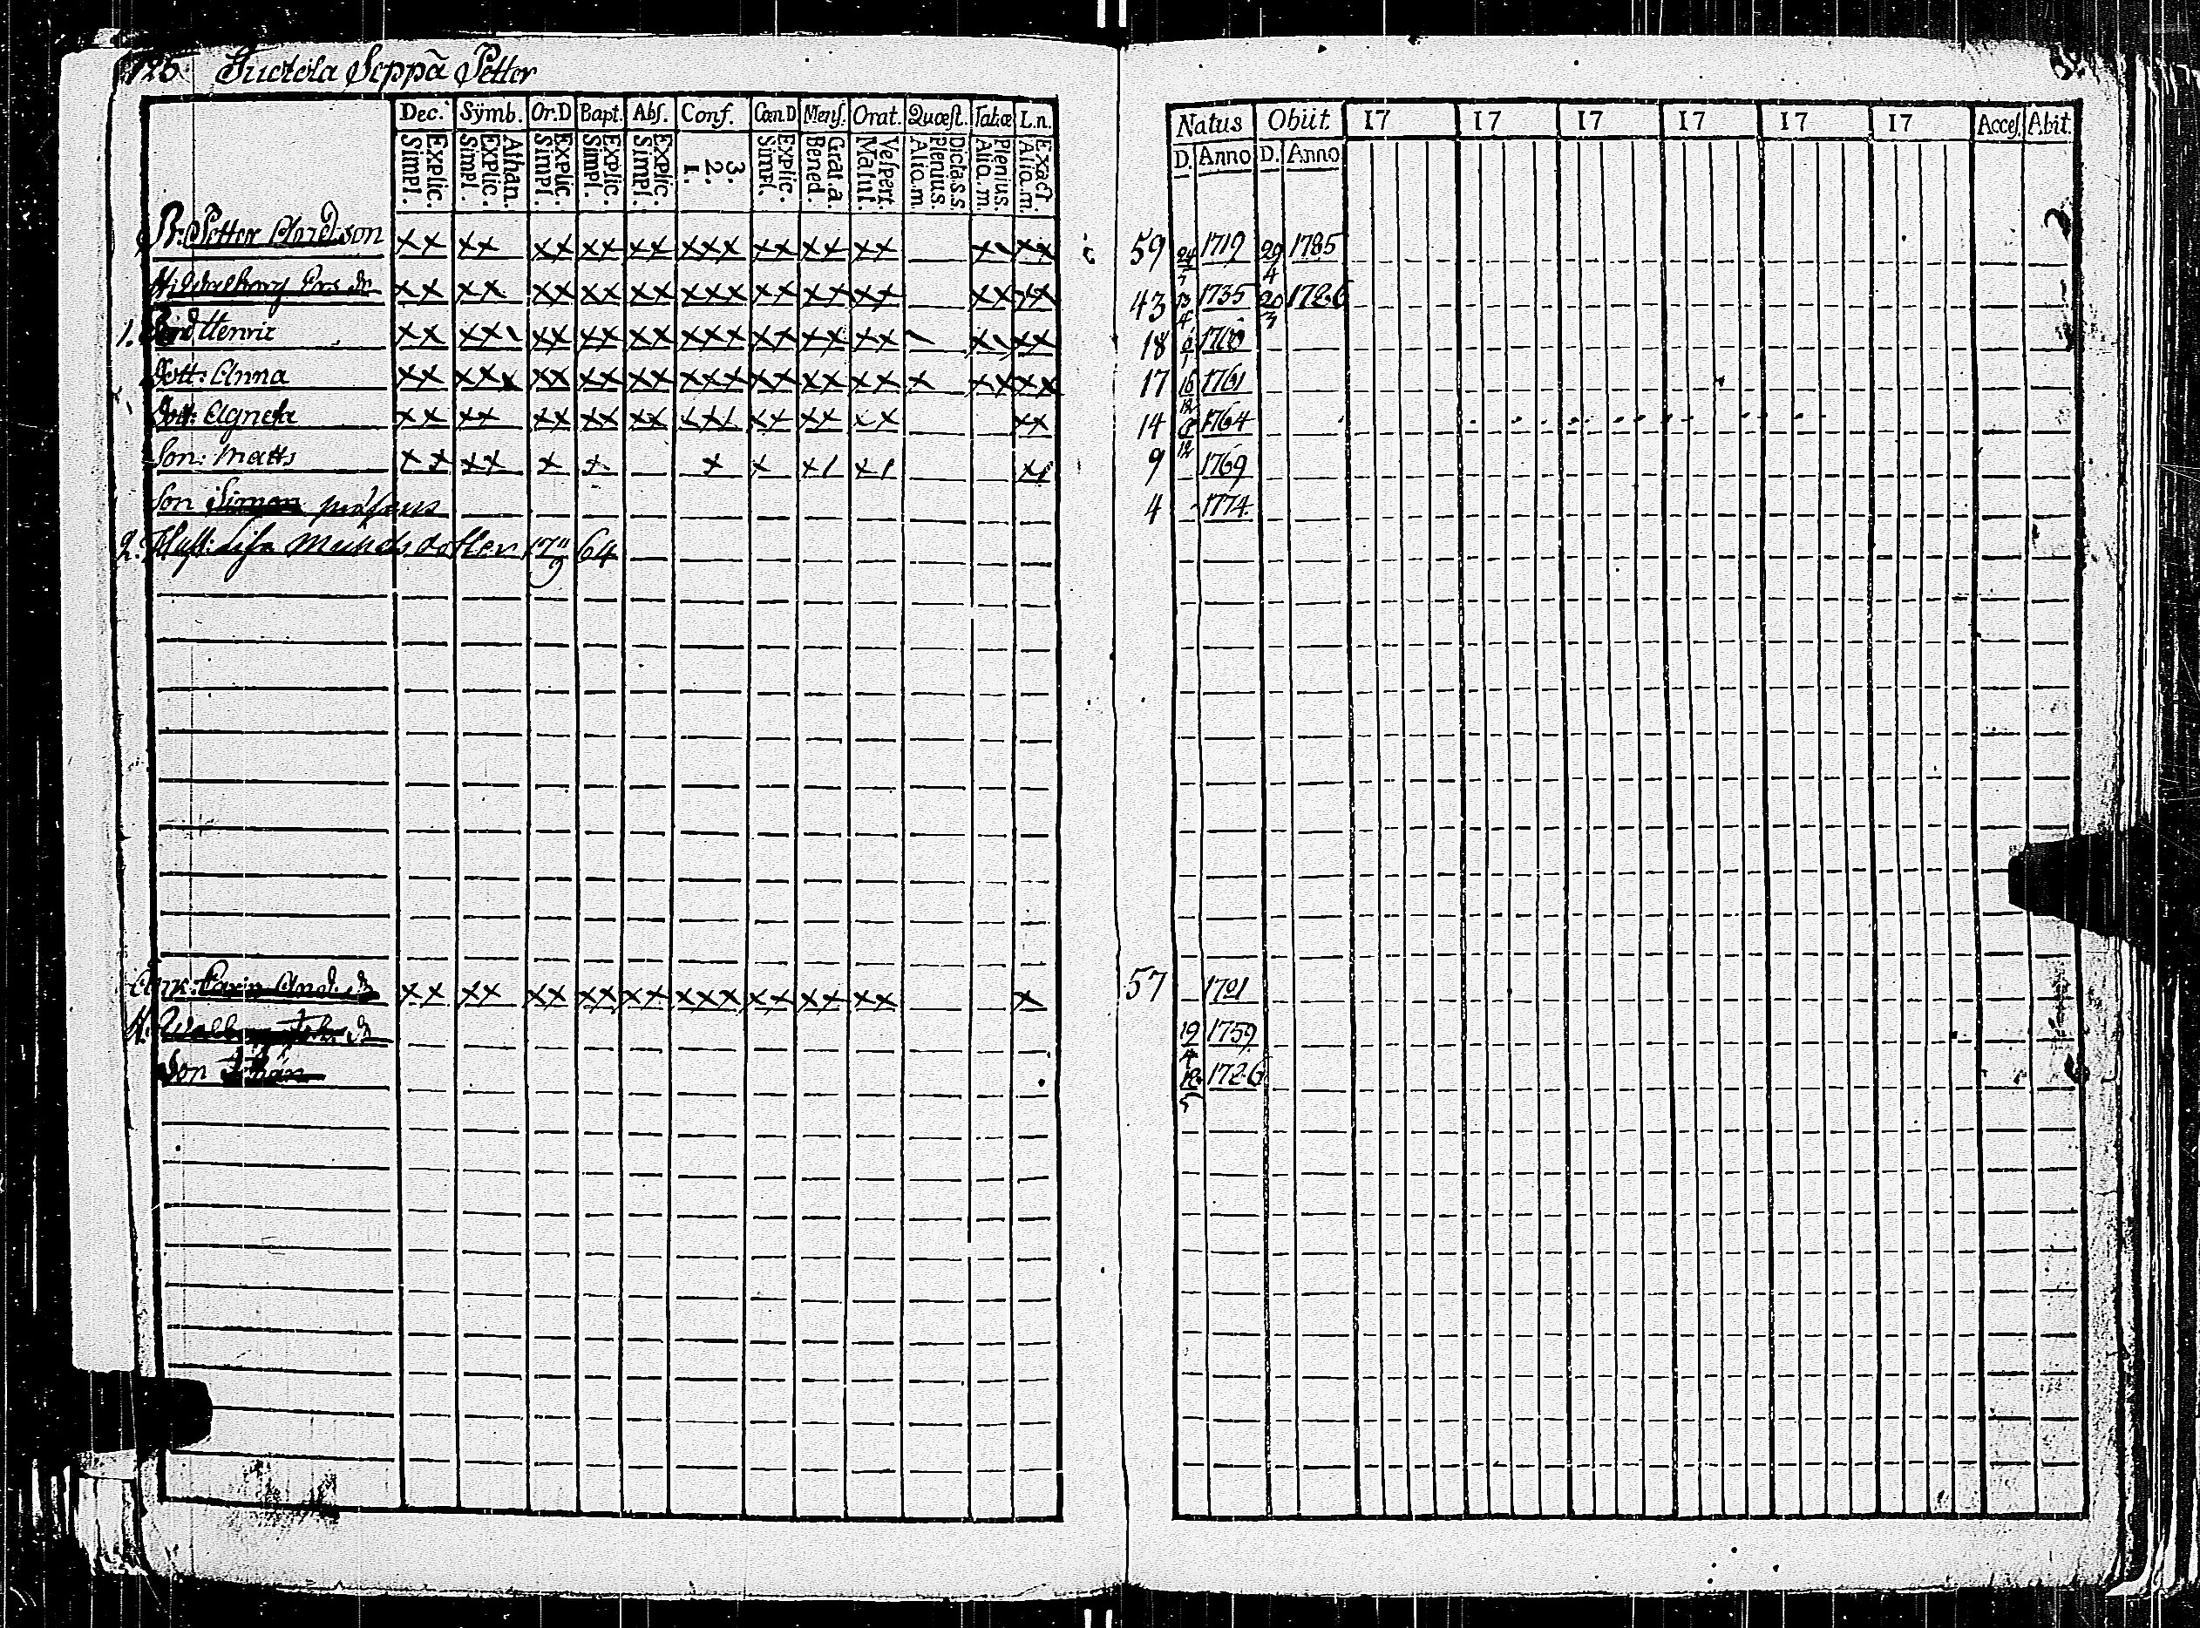 125 Juctola Seppä Petter
Dec. Sÿmb. Or.D Bapt. Abſ. Conf. CœnD Menſ. Orat. Quœſt. Tab.œ L.n.
Explic. Simpl. Athan. Explic. Simpl. Explic. Simpl. Explic. Simpl. Explic. Simpl. 3. 2. 1. Explic. Simpl. Grat.a. Bened. Veſpert. Matut. Dicta.S.S. Plenius. Aliq.m. Plenius. Aliq.m. Exact. Aliq.m.
Natus Obiit. 17 17 17 17 17 17 Acceſ. Abit.
D. Anno D. Anno
B. Petter xx xx xx xx xx xxx xx xx xx 59 24/5 1719 29/4 1785
H. Walborg Ers dr xx xx xx xx xx xxx xx xx xx xx xx 43 1735 20/3 1786
1. Henric xx xx xx xx xx xxx xx xx xx 18 6/1 1760
Dott: Anna xx xxx xx xx xx xxx xx xx xx x xx xx 17 16/12 1761
Dott: Agneta xx xx xx xx xx xxx xx xx xx xx 14 1764
Son: Matts xx xx x x x x 9 1769
Son Simon 4 1774
2. Hust: Lisa Munds dotter 17 9/9 64
Enk: Carin And: dr xx xx xx xx xx xxx xx xx xx x 57 1701
H. dr 19/4 1759
Son Johan 18/5 1786